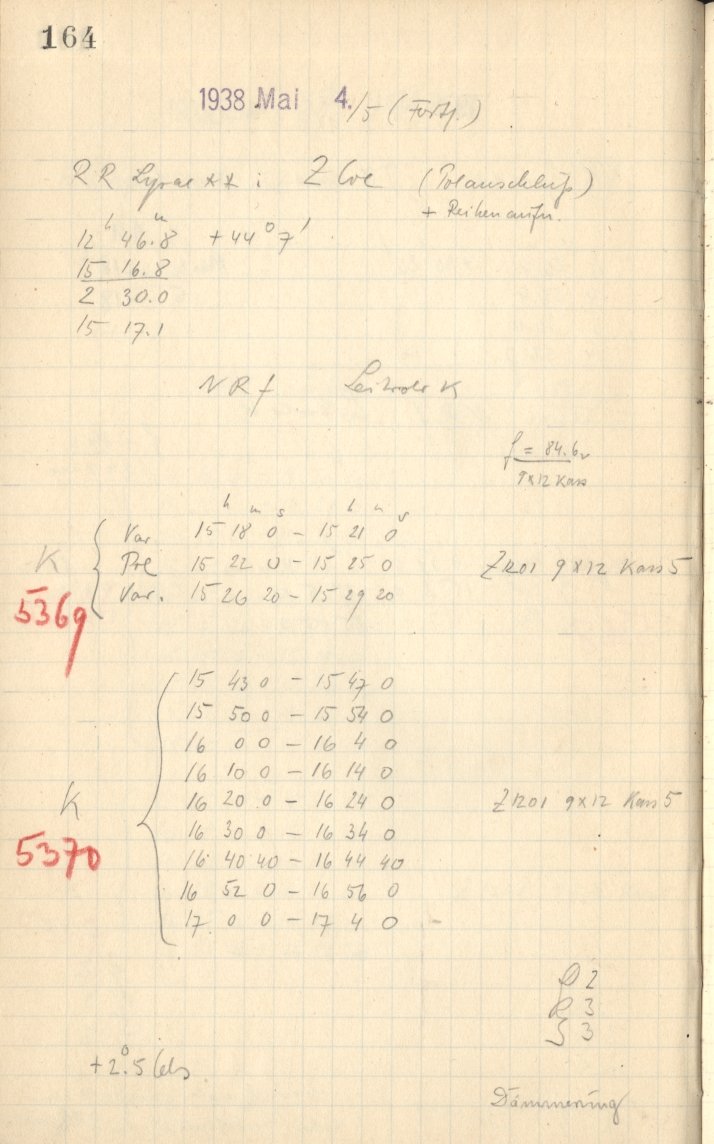 164
1938 Mai 4./5 (Forts.)
RR Lyrae ** : Z CVe (Polanschluß)
+ Reihenaufn.
12 h 46.8 m +44° 7'
15 16.8
2 30.0
15 17.1
NRf Leitrohr K
f = 84.6
9x12 Kass
h m s h m s
Var 15 18 0 – 15 21 0
K { Pol 15 22 0 – 15 25 0 Z1201 9x12 Kass 5
5369 Var. 15 26 20 – 15 29 20
15 43 0 – 15 47 0
15 50 0 – 15 54 0
16 0 0 – 16 4 0
16 10 0 – 16 14 0
K { 16 20 0 – 16 24 0 Z1201 9x12 Kass 5
16 30 0 – 16 34 0
5370 16 40 40 – 16 44 40
16 52 0 – 16 56 0
17 0 0 – 17 4 0 –
D 2
R 3
S 3
+2°.5 Cels
Dämmerung